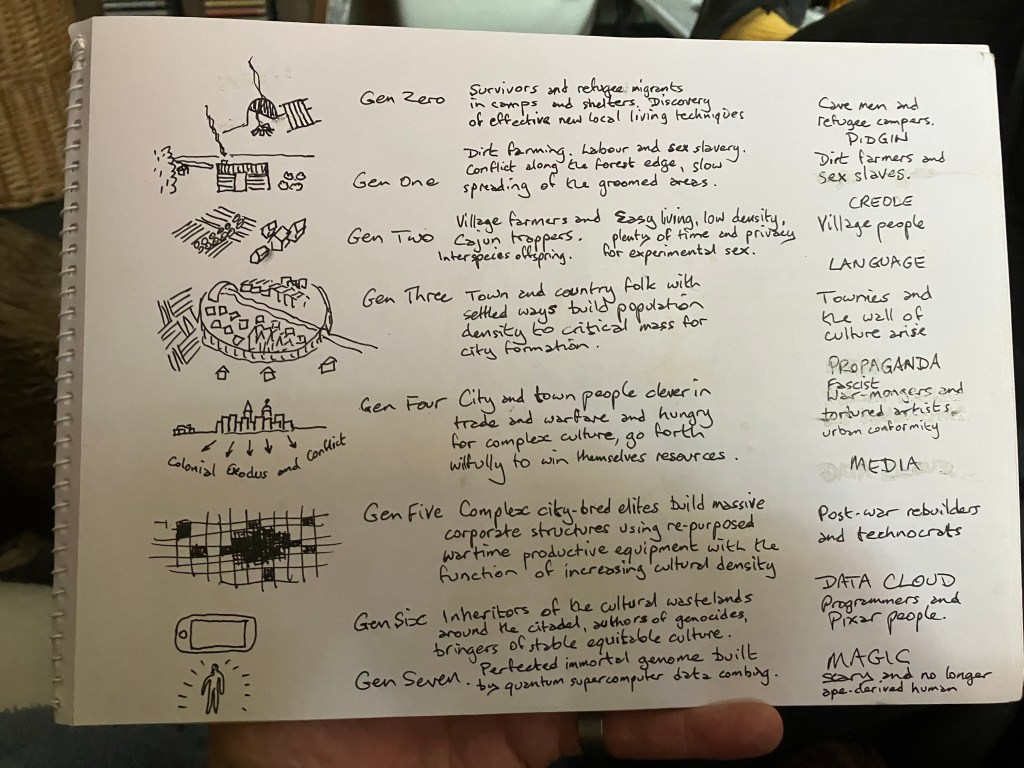 Gen Zero
Survivors and refugee migrants
in camps and shelters. Discovery
of effective new local living techniques
Cave men and
refugee campers.
PIDGIN
Gen One
Dirt farming. Labour and sex slavery.
Conflict along the forest edge, slow
spreading of the groomed areas.
Dirt farmers and
sex slaves.
CREOLE
Gen Two
Village farmers and
Cajun trappers.
Interspecies offspring.
Easy living, low density,
plenty of time and privacy
for experimental sex.
Village people
LANGUAGE
Gen Three
Town and country folk with
settled ways build population
density to critical mass for
city formation.
Townies and
the wall of
culture arise
PROPAGANDA
Gen Four
City and town people clever in
trade and warfare and hungry
for complex culture, go forth
wilfully to win themselves resources.
Colonial Exodus and Conflict
Fascist
war-mongers and
tortured artists.
urban conformity
MEDIA
Gen Five
Complex city-bred elites build massive
corporate structures using re-purposed
wartime productive equipment with the
function of increasing cultural density
Post-war rebuilders
and technocrats
DATA CLOUD
Gen Six
Inheritors of the cultural wastelands
around the citadel, authors of genocides,
bringers of stable equitable culture.
Programmers and
Pixar people.
MAGIC
Gen Seven.
Perfected immortal genome built
by quantum supercomputer data combing.
scary and no longer
ape-derived human